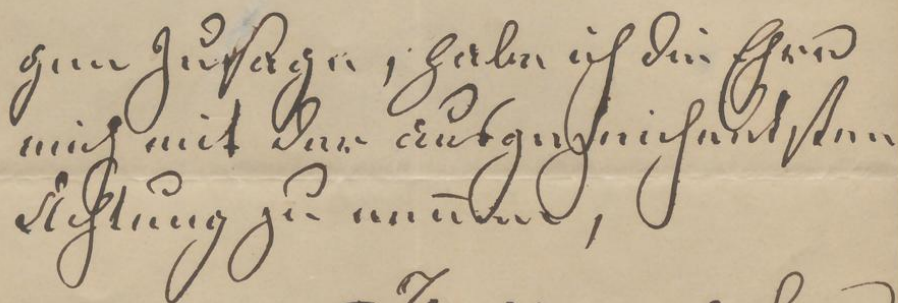 gen Zusage, habe ich die Ehre
mich mit der ausgezeichnetsten
Achtung zu nennen,